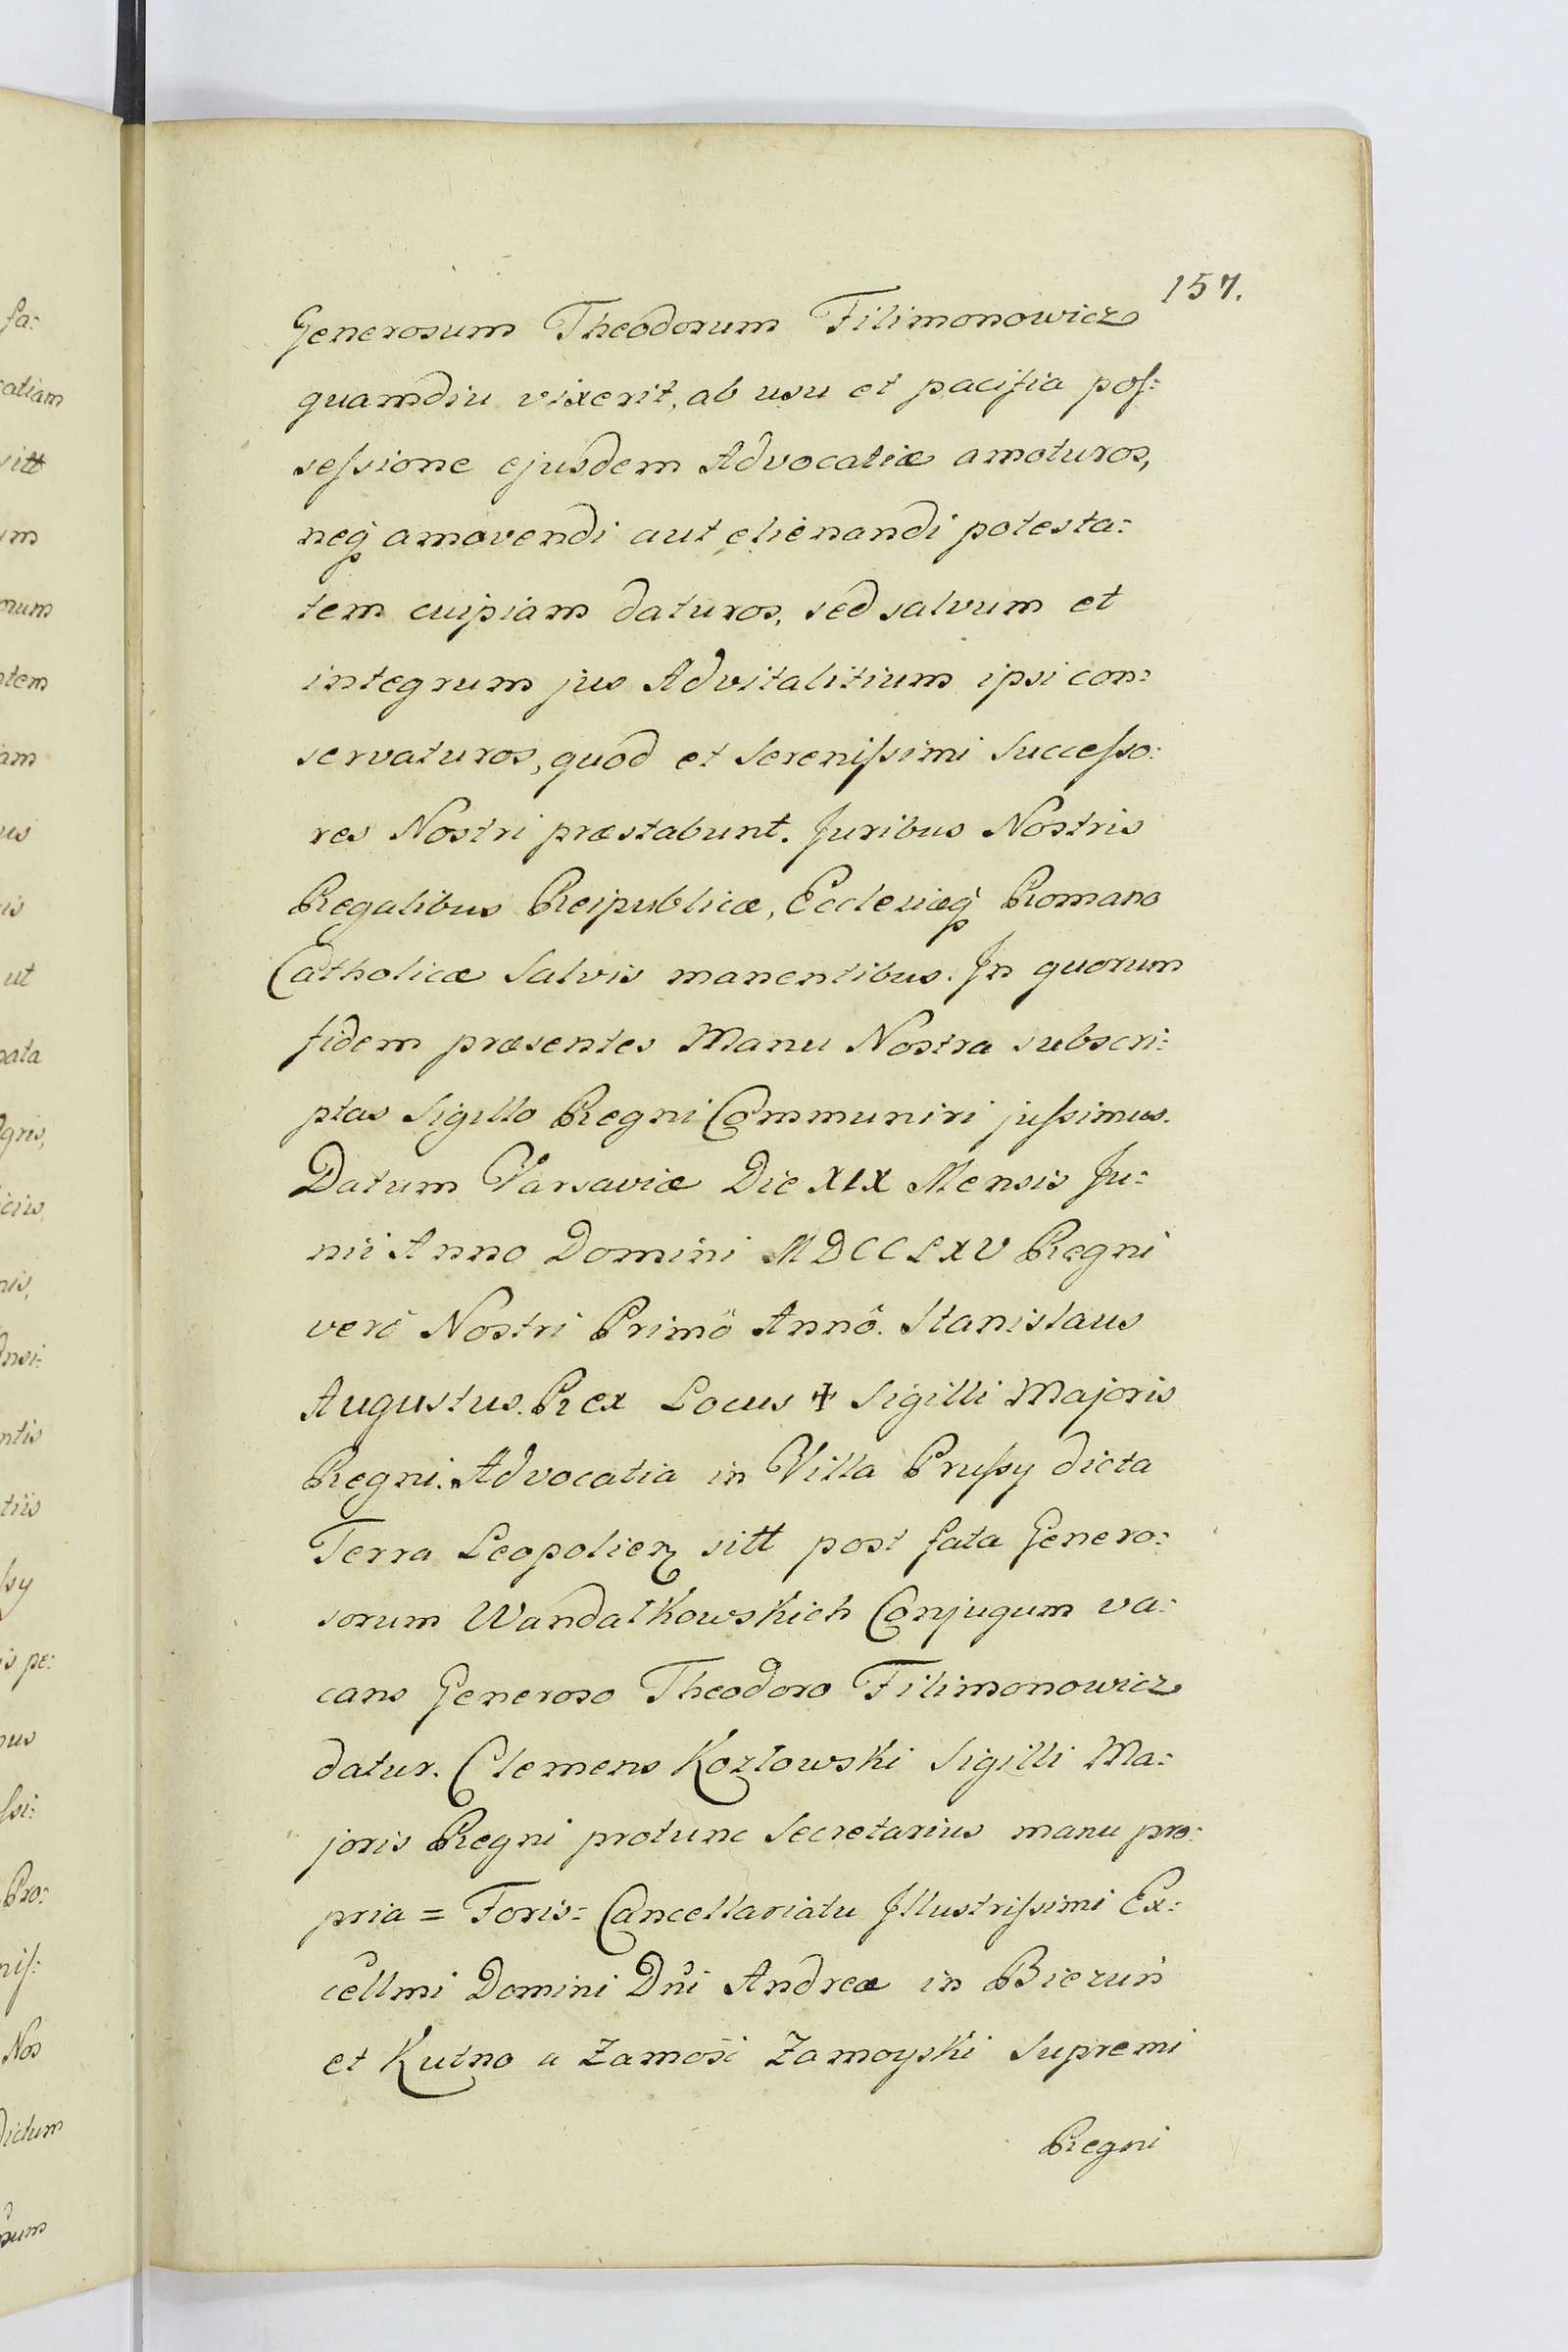 157.
Generosum Theodorum Filimonowicz
quamdiu vixerit, ab usu et pacifia pos:
sessione ejusdem Advocatiæ amoturos,
neq̃ amovendi aut elienandi potesta:
tem cuipiam daturos, sed salvum et
integrum jus Advitalitium ipsi con:
servaturos, quod et Serenissimi Successo:
res Nostri præstabunt. Juribus Nostris
Regalibus Reipublicæ, Ecclesiæq̃ Romano
Catholicæ Salvis manentibus. In quorum
fidem præsentes Manu Nostra subscri:
ptas Sigillo Regni Communiri jussimus.
Datum Varsaviæ Die XIX Mensis Ju:
nii Anno Domini MDCCLXV Regni
verò Nostri Primô Annô. Stanislaus
Augustus. Rex Locus ✝ Sigilli Majoris
Regni. Advocatia in Villa Prussy dicta
Terra Leopolien sitt post fata Genero:
sorum Wandalkowskich Conjugum va:
cans Generoso Theodoro Filimonowicz
datur. Clemens Kozłowski Sigilli Ma:
joris Regni protunc Secretarius manu pro:
pria = Foris: Cancellariatu Illustrissimi Ex:
cellmi Domini Dni Andreæ in Biezuń
et Kutno a Zamość Zamoyski Supremi
Regni
fa:
catiam
vitt
um
orum
ntem
iam
us
is
ut
pata
Ogris,
iciis,
nis,
Onsi:
ntis
tiis
ssy
is pe:
ous
ssi:
Pro:
nis:
Nos
dictum